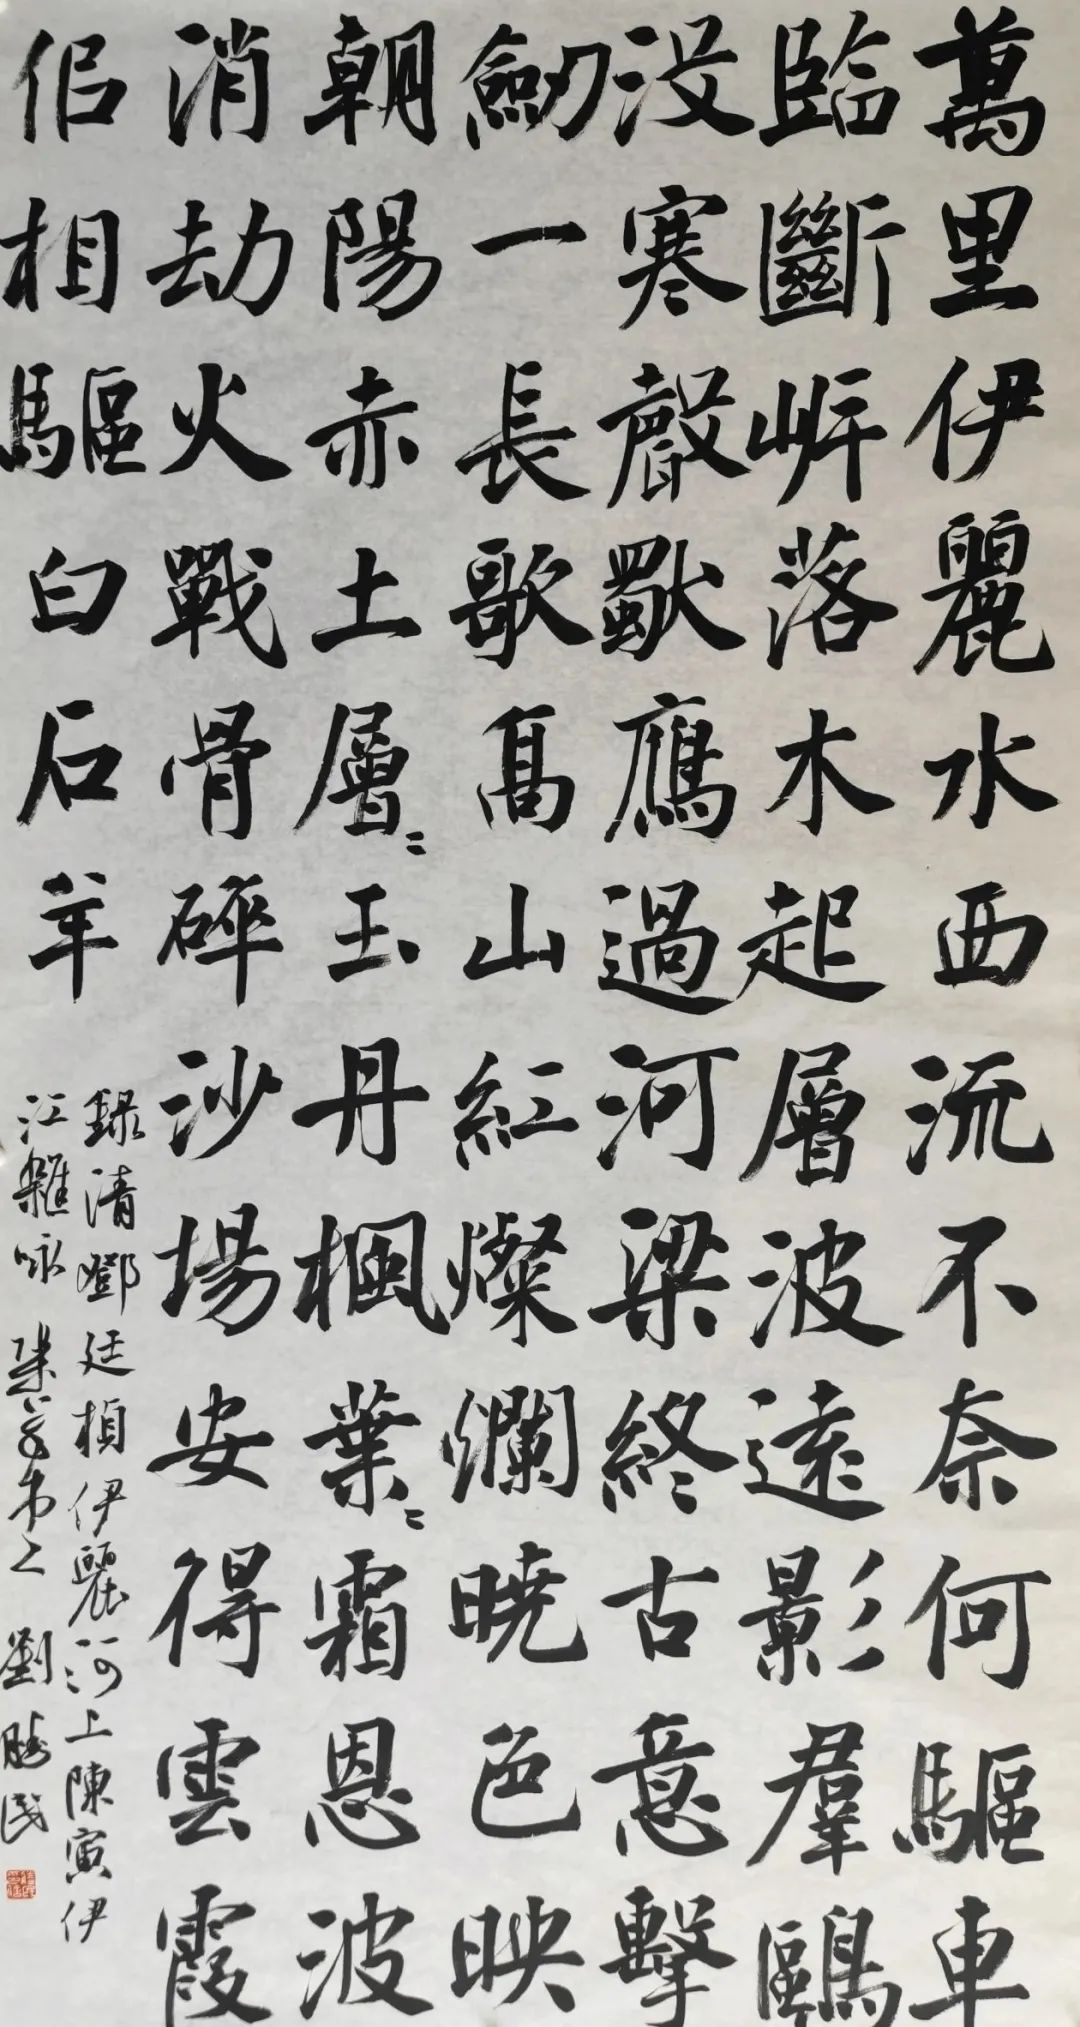 萬里伊麗水西流不奈何驅車
臨斷岸落木起層波遠影羣鷗
没寒聲獸鷹過河梁終古意擊
劒一長歌高山紅燦爛曉色映
朝陽赤土層〻玉丹楓葉〻霜恩波
消劫火戰骨碎沙場安得雲霞
侣相驅白石羊
録清鄧廷楨伊麗河上陳寅伊
江雜咏 劉勝民